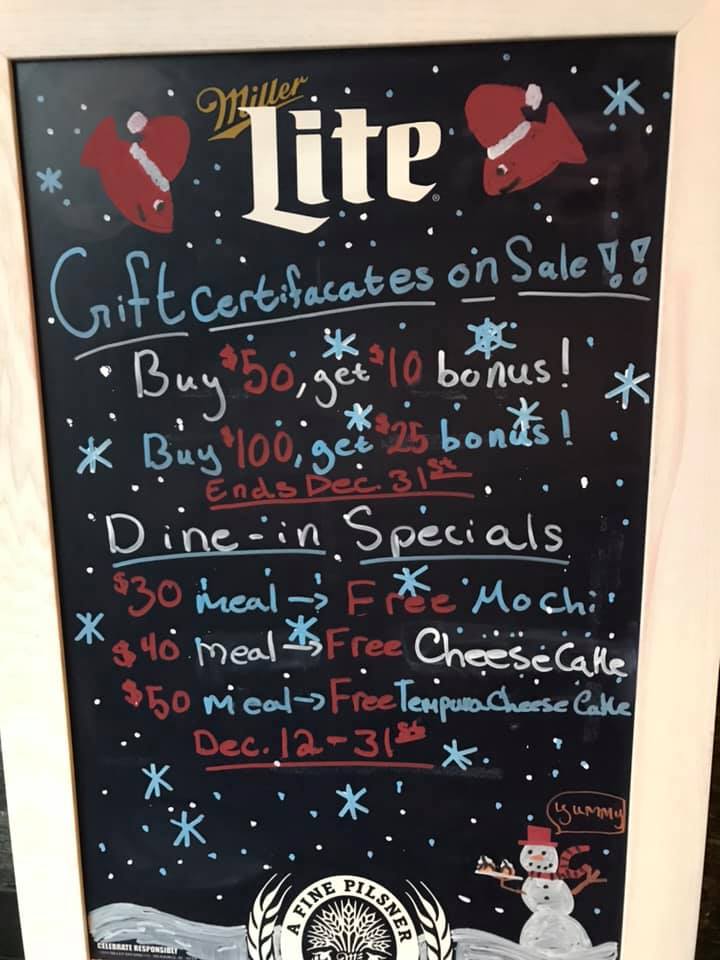 Miller
Lite
Gift certifacates on Sale !!
Buy $50, get $10 bonus!
Buy $100, get $25 bonus!
Ends Dec. 31st
Dine-in Specials
$30 meal → Free Mochi
$40 meal → Free Cheese Cake
$50 meal → Free Tempura Cheese Cake
Dec. 12-31st
yummy
A FINE PILSNER
CELEBRATE RESPONSIBLY